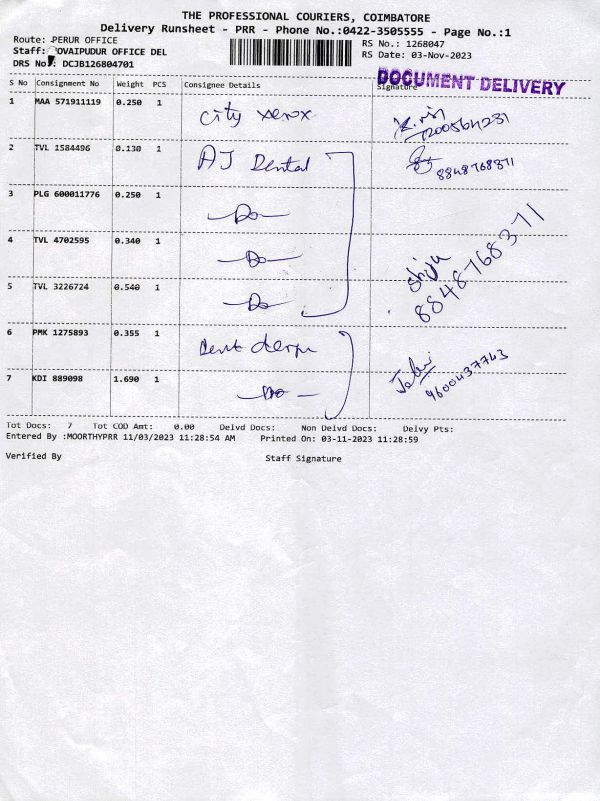 THE PROFESSIONAL COURIERS, COIMBATORE
Delivery Runsheet - PRR - Phone No.:0422-3505555 - Page No.:1
Route: PERUR OFFICE
RS No.: 1268047
Staff: OVAIPUDUR OFFICE DEL
RS Date: 03-Nov-2023
DRS No: DCJB126804701
DOCUMENT DELIVERY
S No Consignment No Weight PCS Consignee Details Signature
1 MAA 571911119 0.250 1 City xerox
7200564231
2 TVL 1584496 0.130 1 AJ Dental 8848768371
3 PLG 600011776 0.250 1 Do
4 TVL 4702595 0.340 1 Do Shiju 8848768371
5 TVL 3226724 0.540 1 Do
6 PMK 1275893 0.355 1 Dent
9600437743
7 KDI 889098 1.690 1 Do
Tot Docs: 7 Tot COD Amt: 0.00 Delvd Docs: Non Delvd Docs: Delvy Pts:
Entered By :MOORTHYPRR 11/03/2023 11:28:54 AM Printed On: 03-11-2023 11:28:59
Verified By Staff Signature